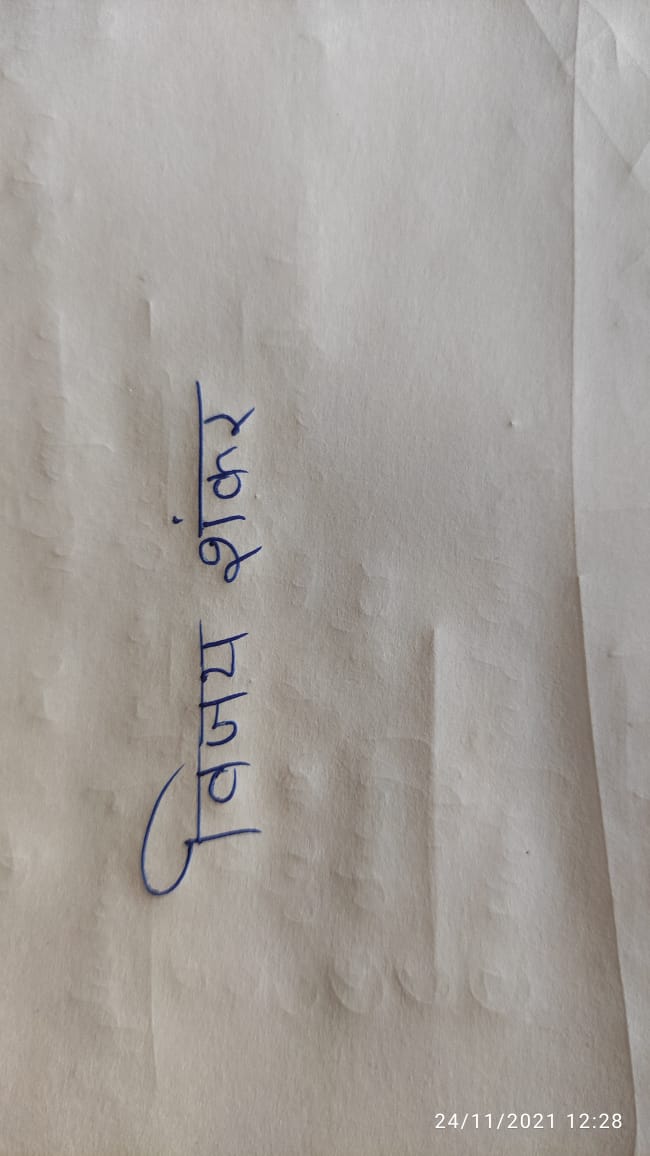 विजय शंकर
24/11/2021 12:28